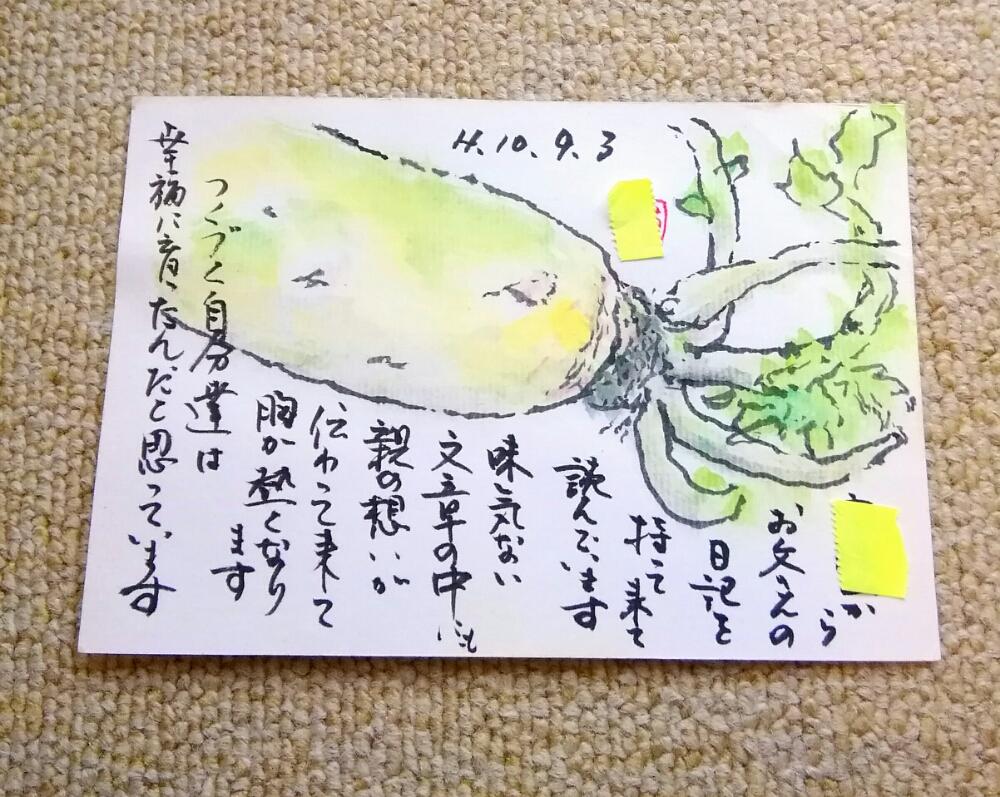 H.10.9.3
から
お父さんの
日記を
持って来て
読んでいます
味気ない
文章の中にも
親の想いが
伝わって来て
胸が熱くなり
ます
つくづく自分達は
幸福に育ったんだと思っています